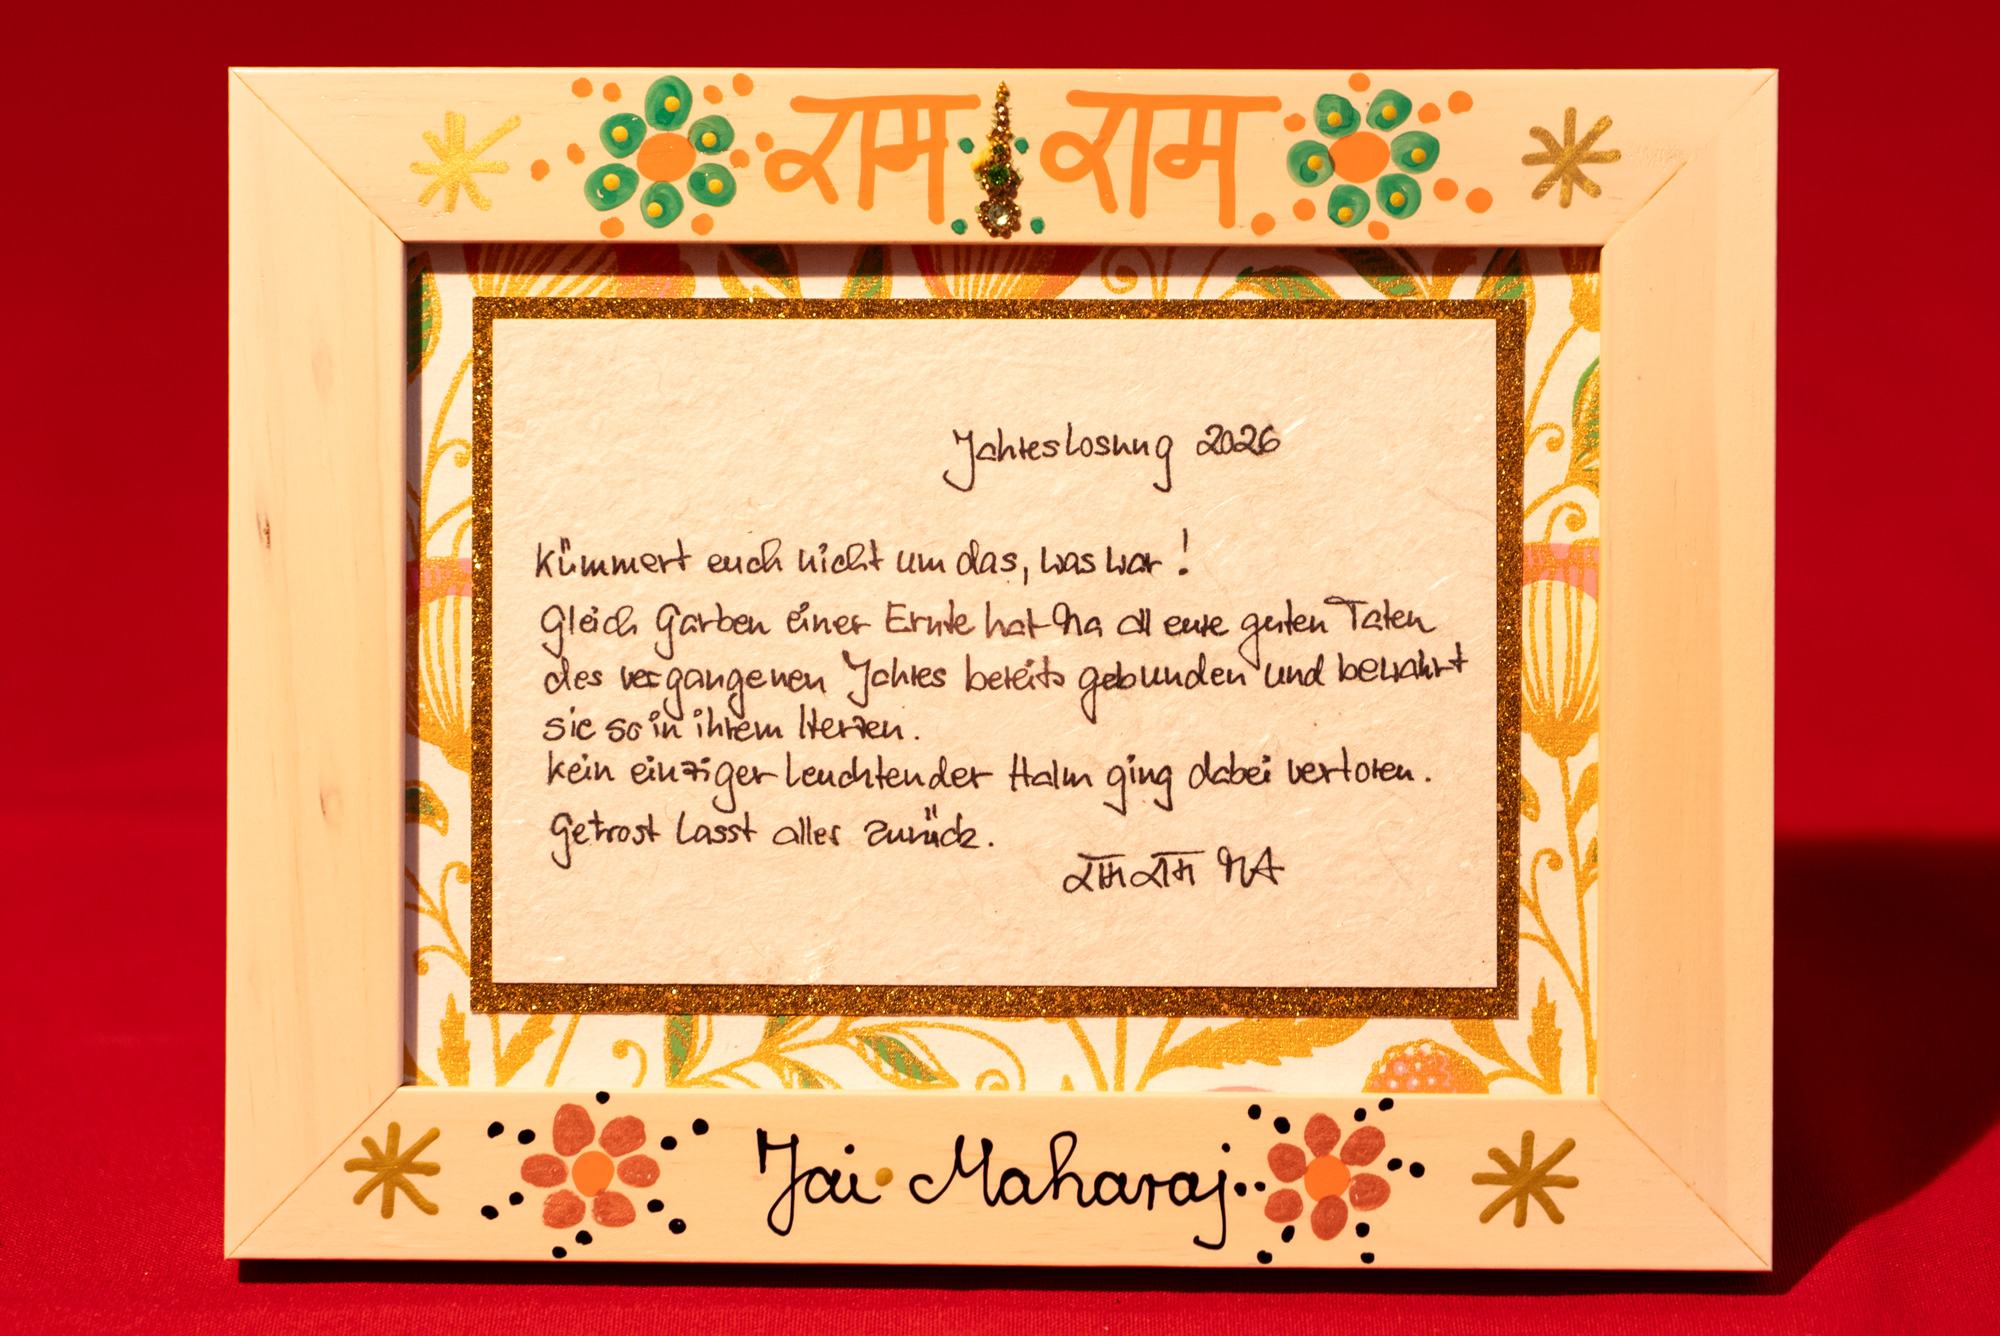 राम राम
Jahreslosung 2026
Kümmert euch nicht um das, was war!
Gleich Garben einer Ernte hat Ma all eure guten Taten
des vergangenen Jahres bereits gebunden und bewahrt
sie so in ihrem Herzen.
Kein einziger leuchtender Halm ging dabei verloren.
Getrost lasst alles zurück.
राम राम MA
Jai Maharaj